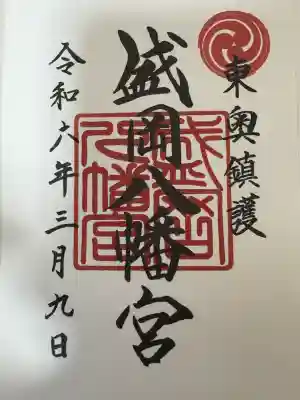 東奥鎮護
盛岡八幡宮
令和六年三月九日